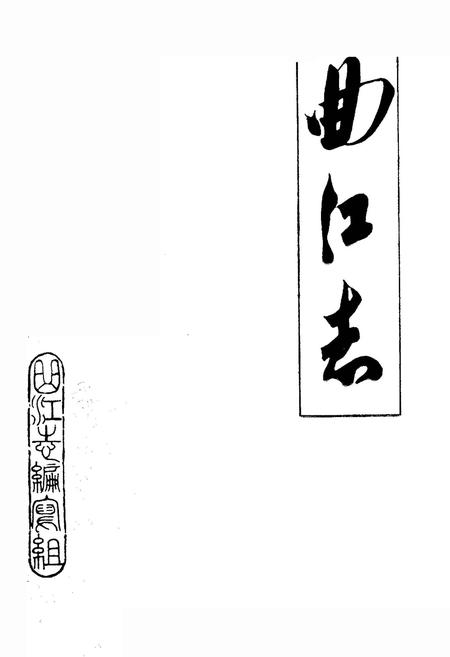 曲江志
曲江志編寫組